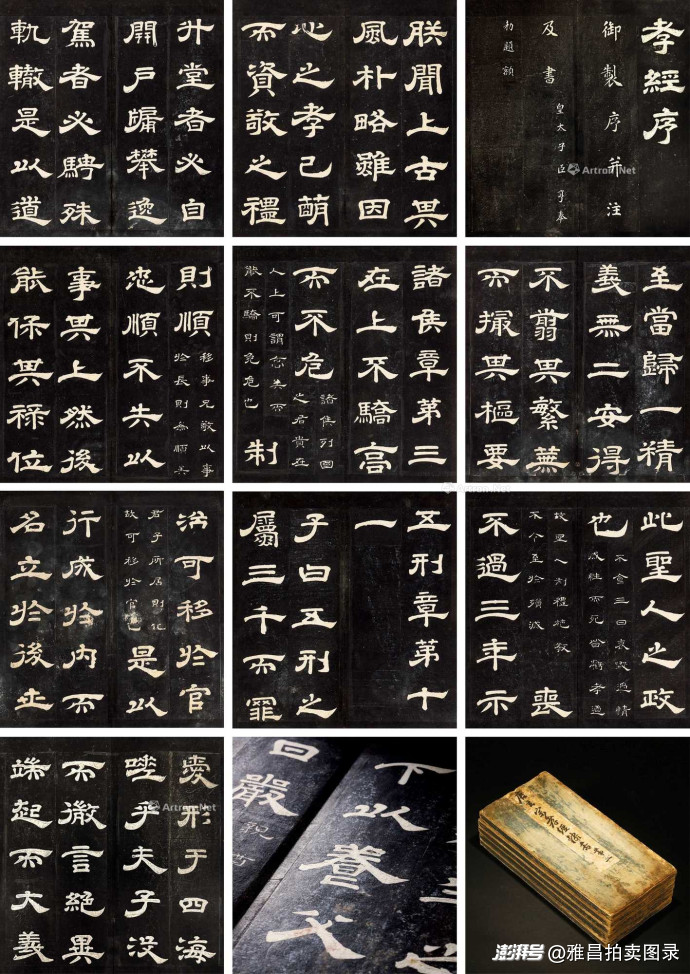 孝經序
御製序并注
及書 皇太子臣亨奉
勑題額
朕聞上古其
風朴略雖因
心之孝已萌
而資敬之禮
升堂者必自
開戶牖攀逸
駕者必騁殊
軌轍是以道
至當歸一精
義無二安得
不翦其繁蕪
而撮其樞要
諸侯章第三
在上不驕高
而不危 諸侯列國
之君貴在
人上可謂高矣而
能不驕則免危也 制
則順 移事兄敬以事
於長則為順矣
忠順不失以
事其上然後
能保其祿位
此聖人之政
也 不食三日哀毀過情
滅性而死皆虧孝道
故聖人制禮施教
不令至於殞滅 喪
不過三年示
五刑章第十
一
子曰五刑之
屬三千而罪
治可移於官
君子所居則化
故可移於官也 是以
行成於內而
名立於後世
愛形于四海
嗟乎夫子沒
而微言絕異
端起而大義
下
以養父
曰嚴
Artron.Net
澎湃号@雅昌拍卖图录